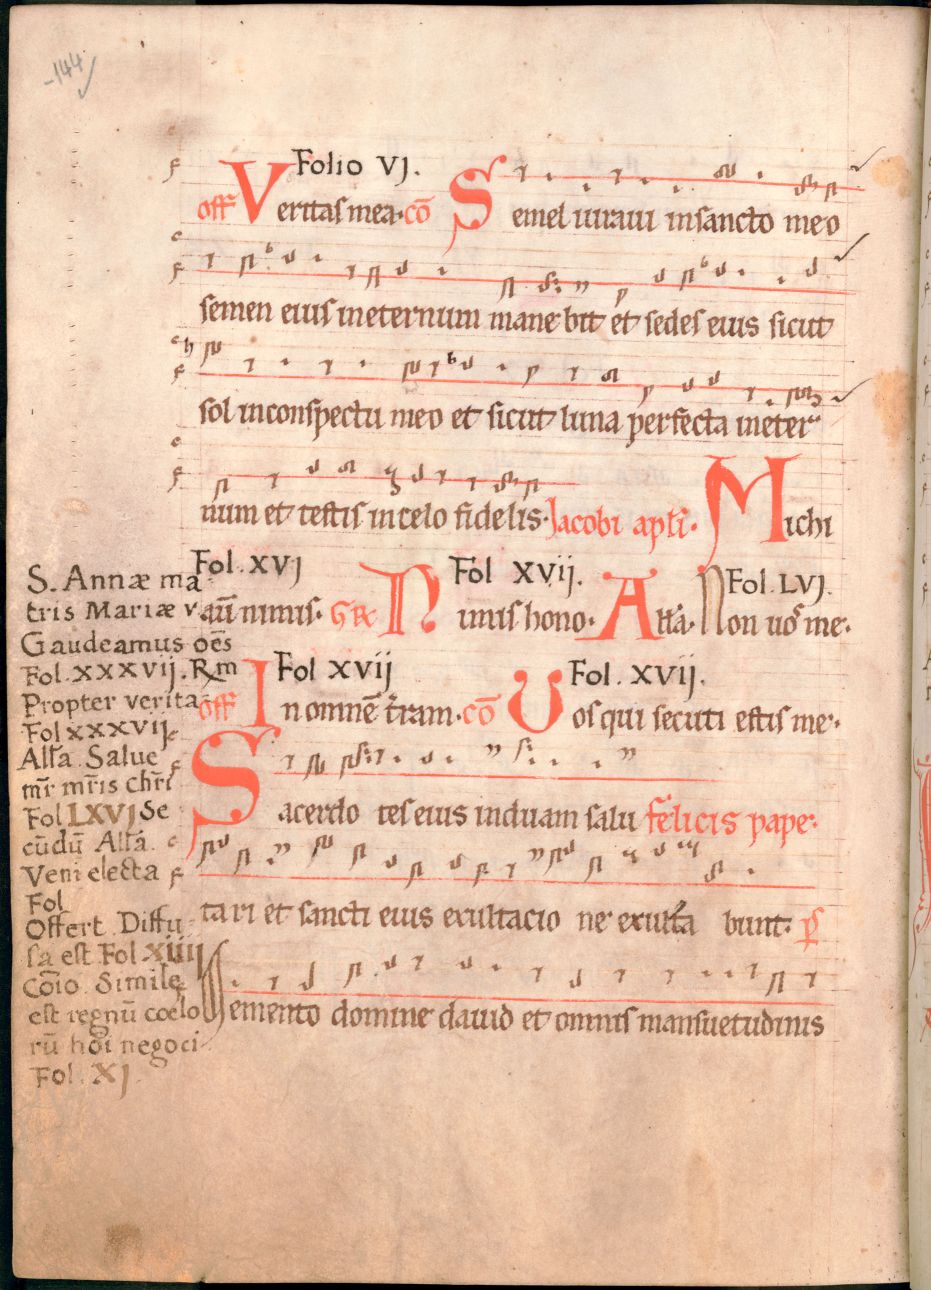 -144
Folio VJ.
off Veritas mea. cō Semel iuraui insancto meo
semen eius ineternum mane bit et sedes eius sicut
sol inconspectu meo et sicut luna perfecta ineter
num et testis incelo fidelis. Jacobi apłi. Michi
Fol. XVJ Fol XVij. Fol. LVJ.
aū nimis. GR Nimis hono. Alła. Non uos me.
Fol XVij Fol. XVij.
off In omnē t̄ram. cō Uos qui secuti estis me.
Sacerdo tes eius induam salu felicis pape.
tari et sancti eius exultacio ne exulta bunt. P̄s
Memento domine dauid et omnis mansuetudinis
S. Annæ ma
tris Mariæ v.
Gaudeamus oēs
Fol. XXXVij. Rm
Propter verita
Fol XXXVij
Alła. Salue
mr̄ mr̄is chr̄i
Fol LXVJ Se
cūdū Alła.
Veni electa
Fol
Offert. Diffu
sa est Fol XIIIJ
Cōio. Simile
est regnū coelo
rū hōi negoci
Fol. XJ